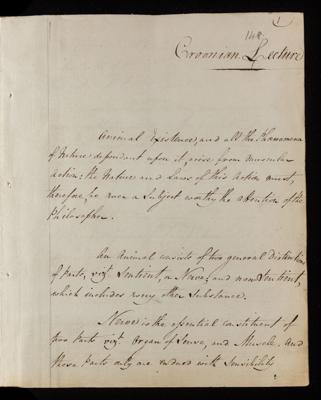 1
148
Croonian Lecture
Animal Existence, and all the Phænomena
of Nature dependant upon it, arise from muscular
Action: the Nature and Laws of this Action must,
therefore, be ever a Subject worthy the attention of the
Philosopher.
An Animal consists of two general distinctions
of Parts, vizt. Sentient, or Nerve; and non Sentient,
which includes every other Substance.
Nerve is the essential constituent of
two Parts vizt. Organ of Sense, and Muscle. And
these Parts only are endued with Sensibility